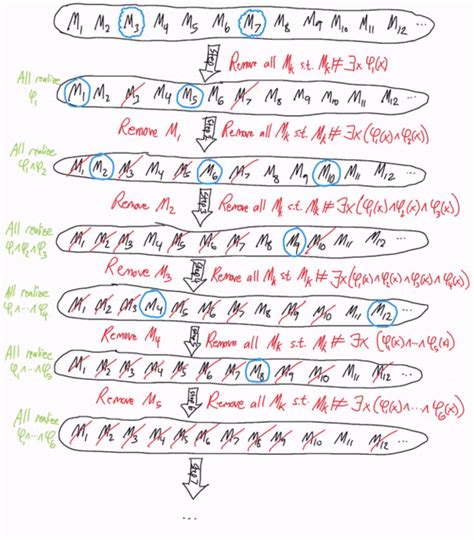 M₁ M₂ M₃ M₄ M₅ M₆ M₇ M₈ M₉ M₁₀ M₁₁ M₁₂ ...
Step 1 Remove all Mₖ s.t. Mₖ ⊭ ∃x φ₁(x)
All realize φ₁
M₁ M₂ M₃ M₄ M₅ M₆ M₇ M₈ M₉ M₁₀ M₁₁ M₁₂ ...
Remove M₁ Step 2 Remove all Mₖ s.t. Mₖ ⊭ ∃x(φ₁(x)∧φ₂(x))
All realize φ₁∧φ₂
M₁ M₂ M₃ M₄ M₅ M₆ M₇ M₈ M₉ M₁₀ M₁₁ M₁₂ ...
Remove M₂ Step 3 Remove all Mₖ s.t. Mₖ ⊭ ∃x(φ₁(x)∧φ₂(x)∧φ₃(x))
All realize φ₁∧φ₂∧φ₃
M₁ M₂ M₃ M₄ M₅ M₆ M₇ M₈ M₉ M₁₀ M₁₁ M₁₂ ...
Remove M₃ Remove all Mₖ st. Mₖ ⊭ ∃x(φ₁(x)∧φ₂(x)∧φ₃(x)∧φ₄(x))
All realize φ₁∧...∧φ₄
M₁ M₂ M₃ M₄ M₅ M₆ M₇ M₈ M₉ M₁₀ M₁₁ M₁₂ ...
Remove M₄ Remove all Mₖ s.t. Mₖ ⊭ ∃x (φ₁(x)∧...∧φ₅(x))
All realize φ₁∧...∧φ₅
M₁ M₂ M₃ M₄ M₅ M₆ M₇ M₈ M₉ M₁₀ M₁₁ M₁₂ ...
Remove M₅ Step 6 Remove all Mₖ s.t. Mₖ ⊭ ∃x(φ₁(x)∧...∧φ₆(x))
All realize φ₁∧...∧φ₆
M₁ M₂ M₃ M₄ M₅ M₆ M₇ M₈ M₉ M₁₀ M₁₁ M₁₂ ...
Step 7
...